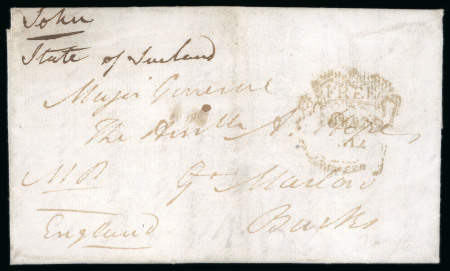 John
State of Ireland
Major General
The Honble A. Hope
MP Gt Marlow
England Bucks
FREE